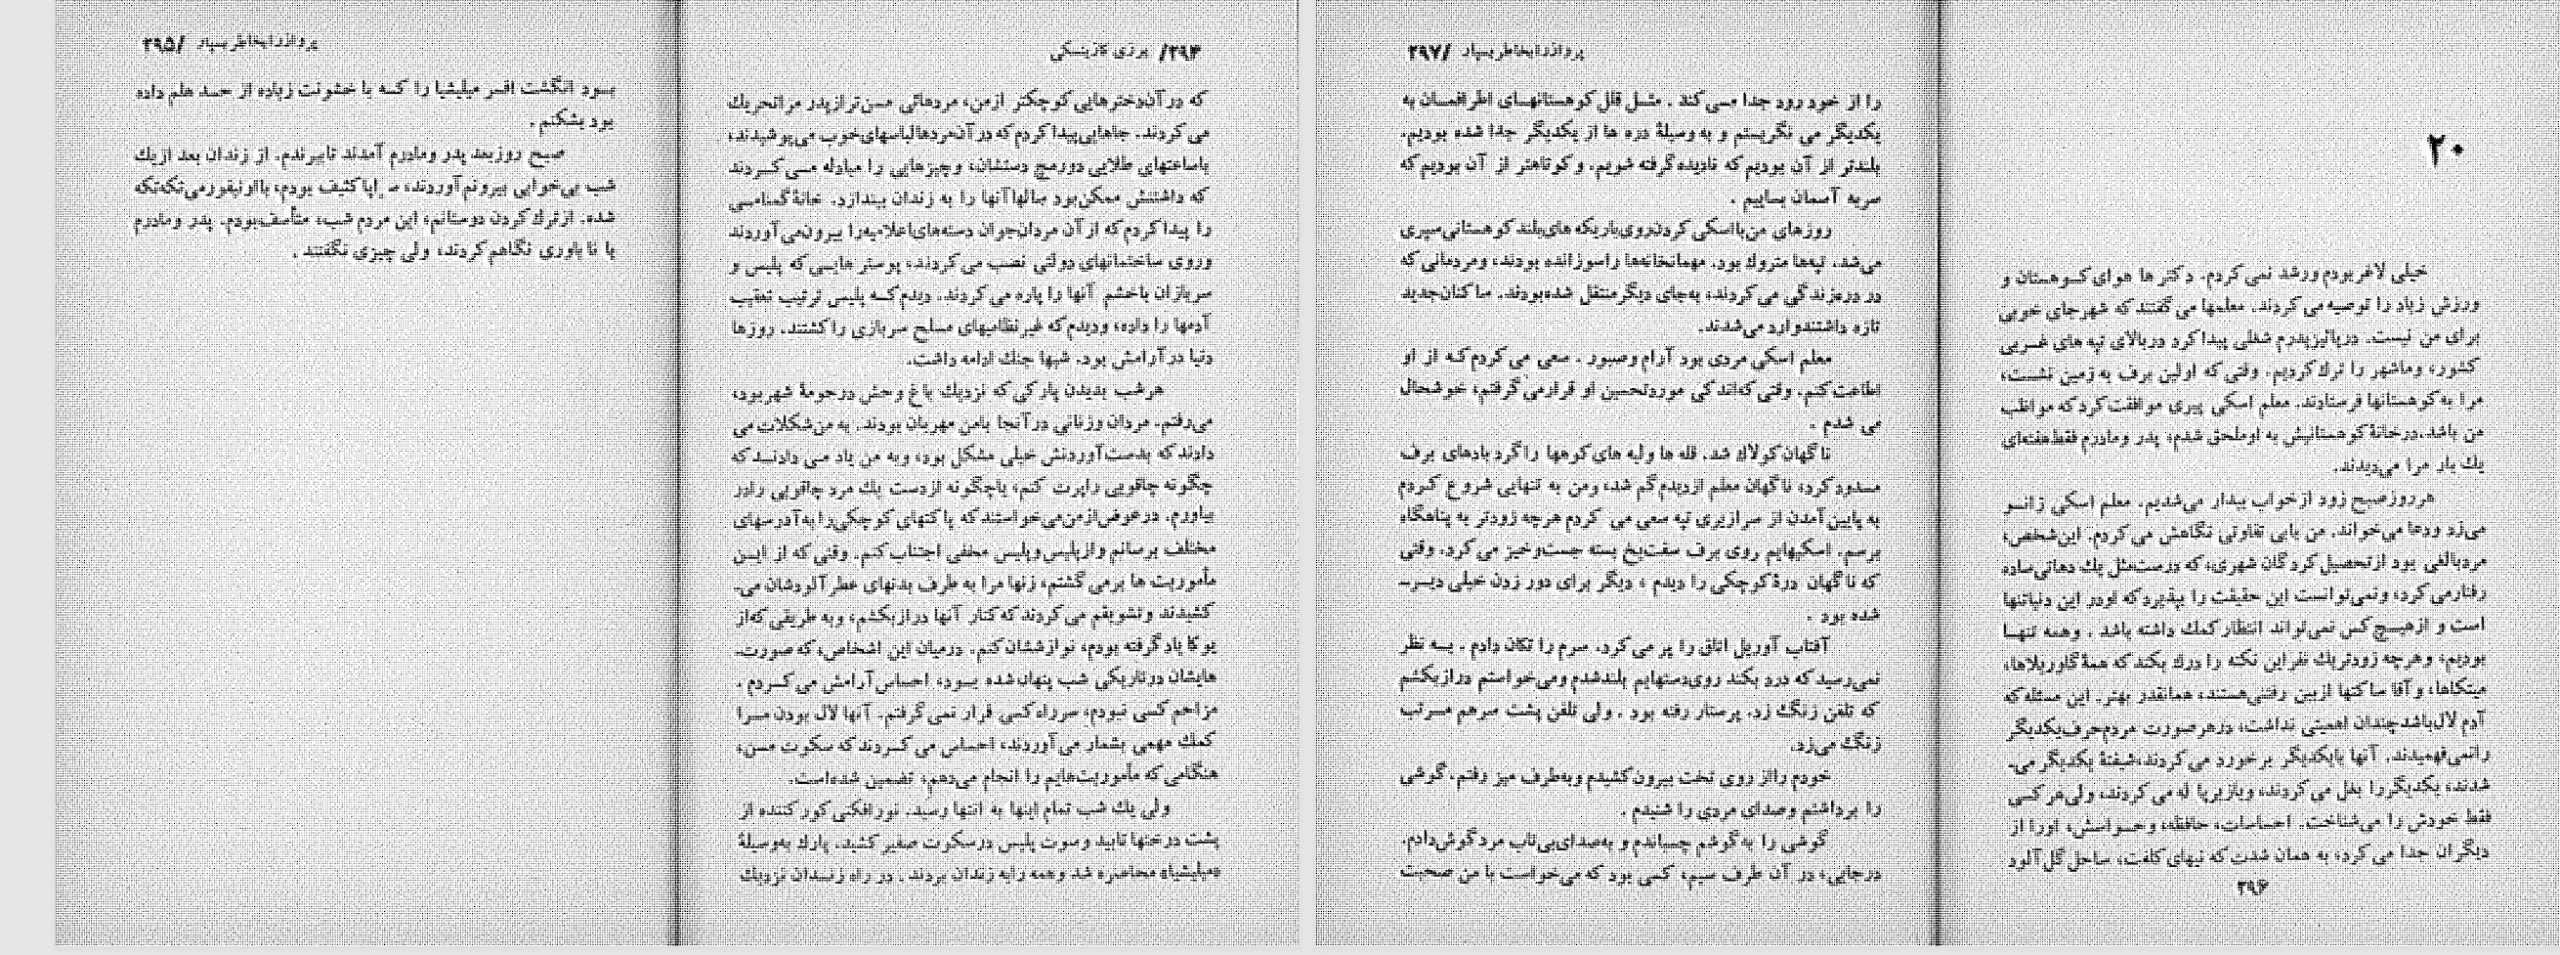 ۲۹۴/ یرزی کازینسکی
که در آن دخترهایی کوچکتر ازمن، مردهائی مسن‌تر ازپدر مراتحریک
می‌کردند. جاهایی پیدا کردم که در آن مردها لباسهای خوب می‌پوشیدند،
باساعتهای طلایی دورمچ دستشان، وچیزهایی را مبادله مــی‌کــردند
که داشتنش ممکن بود سالها آنها را به زندان بیندازد. خانهٔ گمنامــی
را پیدا کردم که از آن مردان جوان دسته‌های اعلامیه را بیرون می‌آوردند
وروی ساختمانهای دولتی نصب می‌کردند، پوستر هایــی که پلیس و
سربازان باخشم آنها را پاره می‌کردند. دیدم کــه پلیس ترتیب تعقیب
آدمها را داده، ودیدم که غیر نظامیهای مسلح سربازی را کشتند. روزها
دنیا در آرامش بود. شبها جنگ ادامه داشت.
هرشب بدیدن پارکی که نزدیک باغ وحش درحومهٔ شهر بود،
می‌رفتم. مردان وزنانی در آنجا بامن مهربان بودند. به من شکلات می
دادند که بدست آوردنش خیلی مشکل بود، وبه من یاد مــی دادنــد که
چگونه چاقویی را پرت کنم، یاچگونه ازدست یک مرد چاقویی رادر
بیاورم. درعوض ازمن می‌خواستند که پاکتهای کوچکی را به آدرسهای
مختلف برسانم و از پلیس و پلیس مخفی اجتناب کنم. وقتی که از ایــن
مأموریت ها برمی گشتم، زنها مرا به طرف بدنهای عطر آلودشان می‌ــ
کشیدند وتشویقم می‌کردند که کنار آنها دراز بکشم، وبه طریقی که از
یوکا یاد گرفته بودم، نوازششان کنم. درمیان این اشخاص، که صورت‌ــ
هایشان درتاریکی شب پنهان شده بــود، احساس آرامش می‌کــردم .
مزاحم کسی نبودم، سرراه کسی قرار نمی گرفتم. آنها لال بودن مــرا
کمک مهمی بشمار می‌آوردند، احساس می‌کــردند که سکوت مــن،
هنگامی که مأموریت‌هایم را انجام می‌دهم، تضمین شده‌است.
ولی یک شب تمام اینها به انتها رسید. نورافکنی کور کننده از
پشت درختها تابید وسوت پلیس درسکوت صفیر کشید. پارک به‌وسیلهٔ
«میلیشیا» محاصره شد وهمه رابه زندان بردند . در راه زنــدان نزدیک
پرواز را بخاطر بسپار /۲۹۵
بــود انگشت افسر میلیشیا را کــه با خشونت زیاده از حــد هلم داده
بود بشکنم .
صبح روزبعد پدر ومادرم آمدند تاببرندم. از زندان بعد ازیک
شب بی‌خوابی بیرونم آوردند، سراپا کثیف بودم، بااونیفورمی تکه‌تکه
شده. از ترک کردن دوستانم، این مردم شب، متأسف بودم. پدر ومادرم
با نا باوری نگاهم کردند، ولی چیزی نگفتند .
۲۰
خیلی لاغر بودم ورشد نمی کردم. دکتر ها هوای کــوهستان و
ورزش زیاد را توصیه می‌کردند. معلمها می گفتند که شهر جای خوبی
برای من نیست. درپائیز پدرم شغلی پیدا کرد دربالای تپه های غــربی
کشور، وماشهر را ترک کردیم. وقتی که اولین برف به زمین نشست،
مرا به کوهستانها فرستادند. معلم اسکی پیری موافقت کرد که مواظب
من باشد. درخانهٔ کوهستانیش به اوملحق شدم، پدر ومادرم فقط هفته‌ای
یک بار مرا می‌دیدند.
هر روز صبح زود از خواب بیدار می‌شدیم. معلم اسکی زانــو
می‌زد ودعا می‌خواند. من بابی تفاوتی نگاهش می کردم. این شخص،
مردبالغی بود از تحصیل کردگان شهری، که درست مثل یک دهاتی ساده
رفتارمی کرد، ونمی‌توانست این حقیقت را بپذیرد که اودر این دنیاتنها
است و از هیــچ کس نمی‌تواند انتظار کمک داشته باشد . وهمه تنهــا
بودیم، وهرچه زودتریک نفر این نکته را درک بکند که همهٔ گاوریلاها،
میتکاها، و آقا ساکتها ازبین رفتنی هستند، همانقدر بهتر. این مسئله که
آدم لال باشد چندان اهمیتی نداشت، درهر صورت مردم حرف یکدیگر
رانمی فهمیدند. آنها بایکدیگر برخورد می کردند، شیفتهٔ یکدیگر می‌ــ
شدند، یکدیگر را بغل می کردند، ویازیر پا له می کردند، ولی هر کسی
فقط خودش را می‌شناخت. احساسات، حافظه، وحــواسش، اورا از
دیگران جدا می کرد، به همان شدت که نیهای کلفت، ساحل گل آلود
۲۹۶
پرواز را بخاطر بسپار /۲۹۷
را از خود رود جدا مــی کند . مثــل قلل کوهستانهــای اطرافمــان به
یکدیگر می نگریستم و به وسیلهٔ دره ها از یکدیگر جدا شده بودیم.
بلندتر از آن بودیم که نادیده گرفته شویم، و کوتاهتر از آن بودیم که
سربه آسمان بساییم .
روزهای من بااسکی کردن روی باریکه های بلند کوهستانی سپری
می‌شد. تپه‌ها متروک بود. مهمانخانه‌ها را سوزانده بودند، ومردمانی که
در دره زندگی می کردند، به‌جای دیگر منتقل شده بودند. ساکنان جدید
تازه داشتندوارد می‌شدند.
معلم اسکی مردی بود آرام وصبور . سعی می کردم کــه از او
اطاعت کنم. وقتی که‌اندکی موردتحسین او قرارمی گرفتم، خوشحال
می شدم .
ناگهان کولاک شد. قله ها ولبه های کوهها را گردبادهای برف
مسدود کرد، ناگهان معلم ازدیدم گم شد، ومن به تنهایی شروع کــردم
به پایین آمدن از سرازیری تپه سعی می کردم هرچه زودتر به پناهگاه
برسم. اسکیهایم روی برف سفت یخ بسته جست‌وخیز می کرد. وقتی
که ناگهان درهٔ کوچکی را دیدم ، دیگر برای دور زدن خیلی دیــرــ
شده بود .
آفتاب آوریل اتاق را پر می کرد. سرم را تکان دادم . بــه نظر
نمی‌رسید که درد بکند روی دستهایم بلندشدم ومی‌خواستم درازبکشم
که تلفن زنگ زد. پرستار رفته بود . ولی تلفن پشت سرهم مــرتب
زنگ می‌زد.
خودم رااز روی تخت بیرون کشیدم وبه‌طرف میز رفتم. گوشی
را برداشتم وصدای مردی را شنیدم .
گوشی را به گوشم چسباندم و به‌صدای بی‌تاب مرد گوش دادم.
درجایی، در آن طرف سیم، کسی بود که می‌خواست با من صحبت